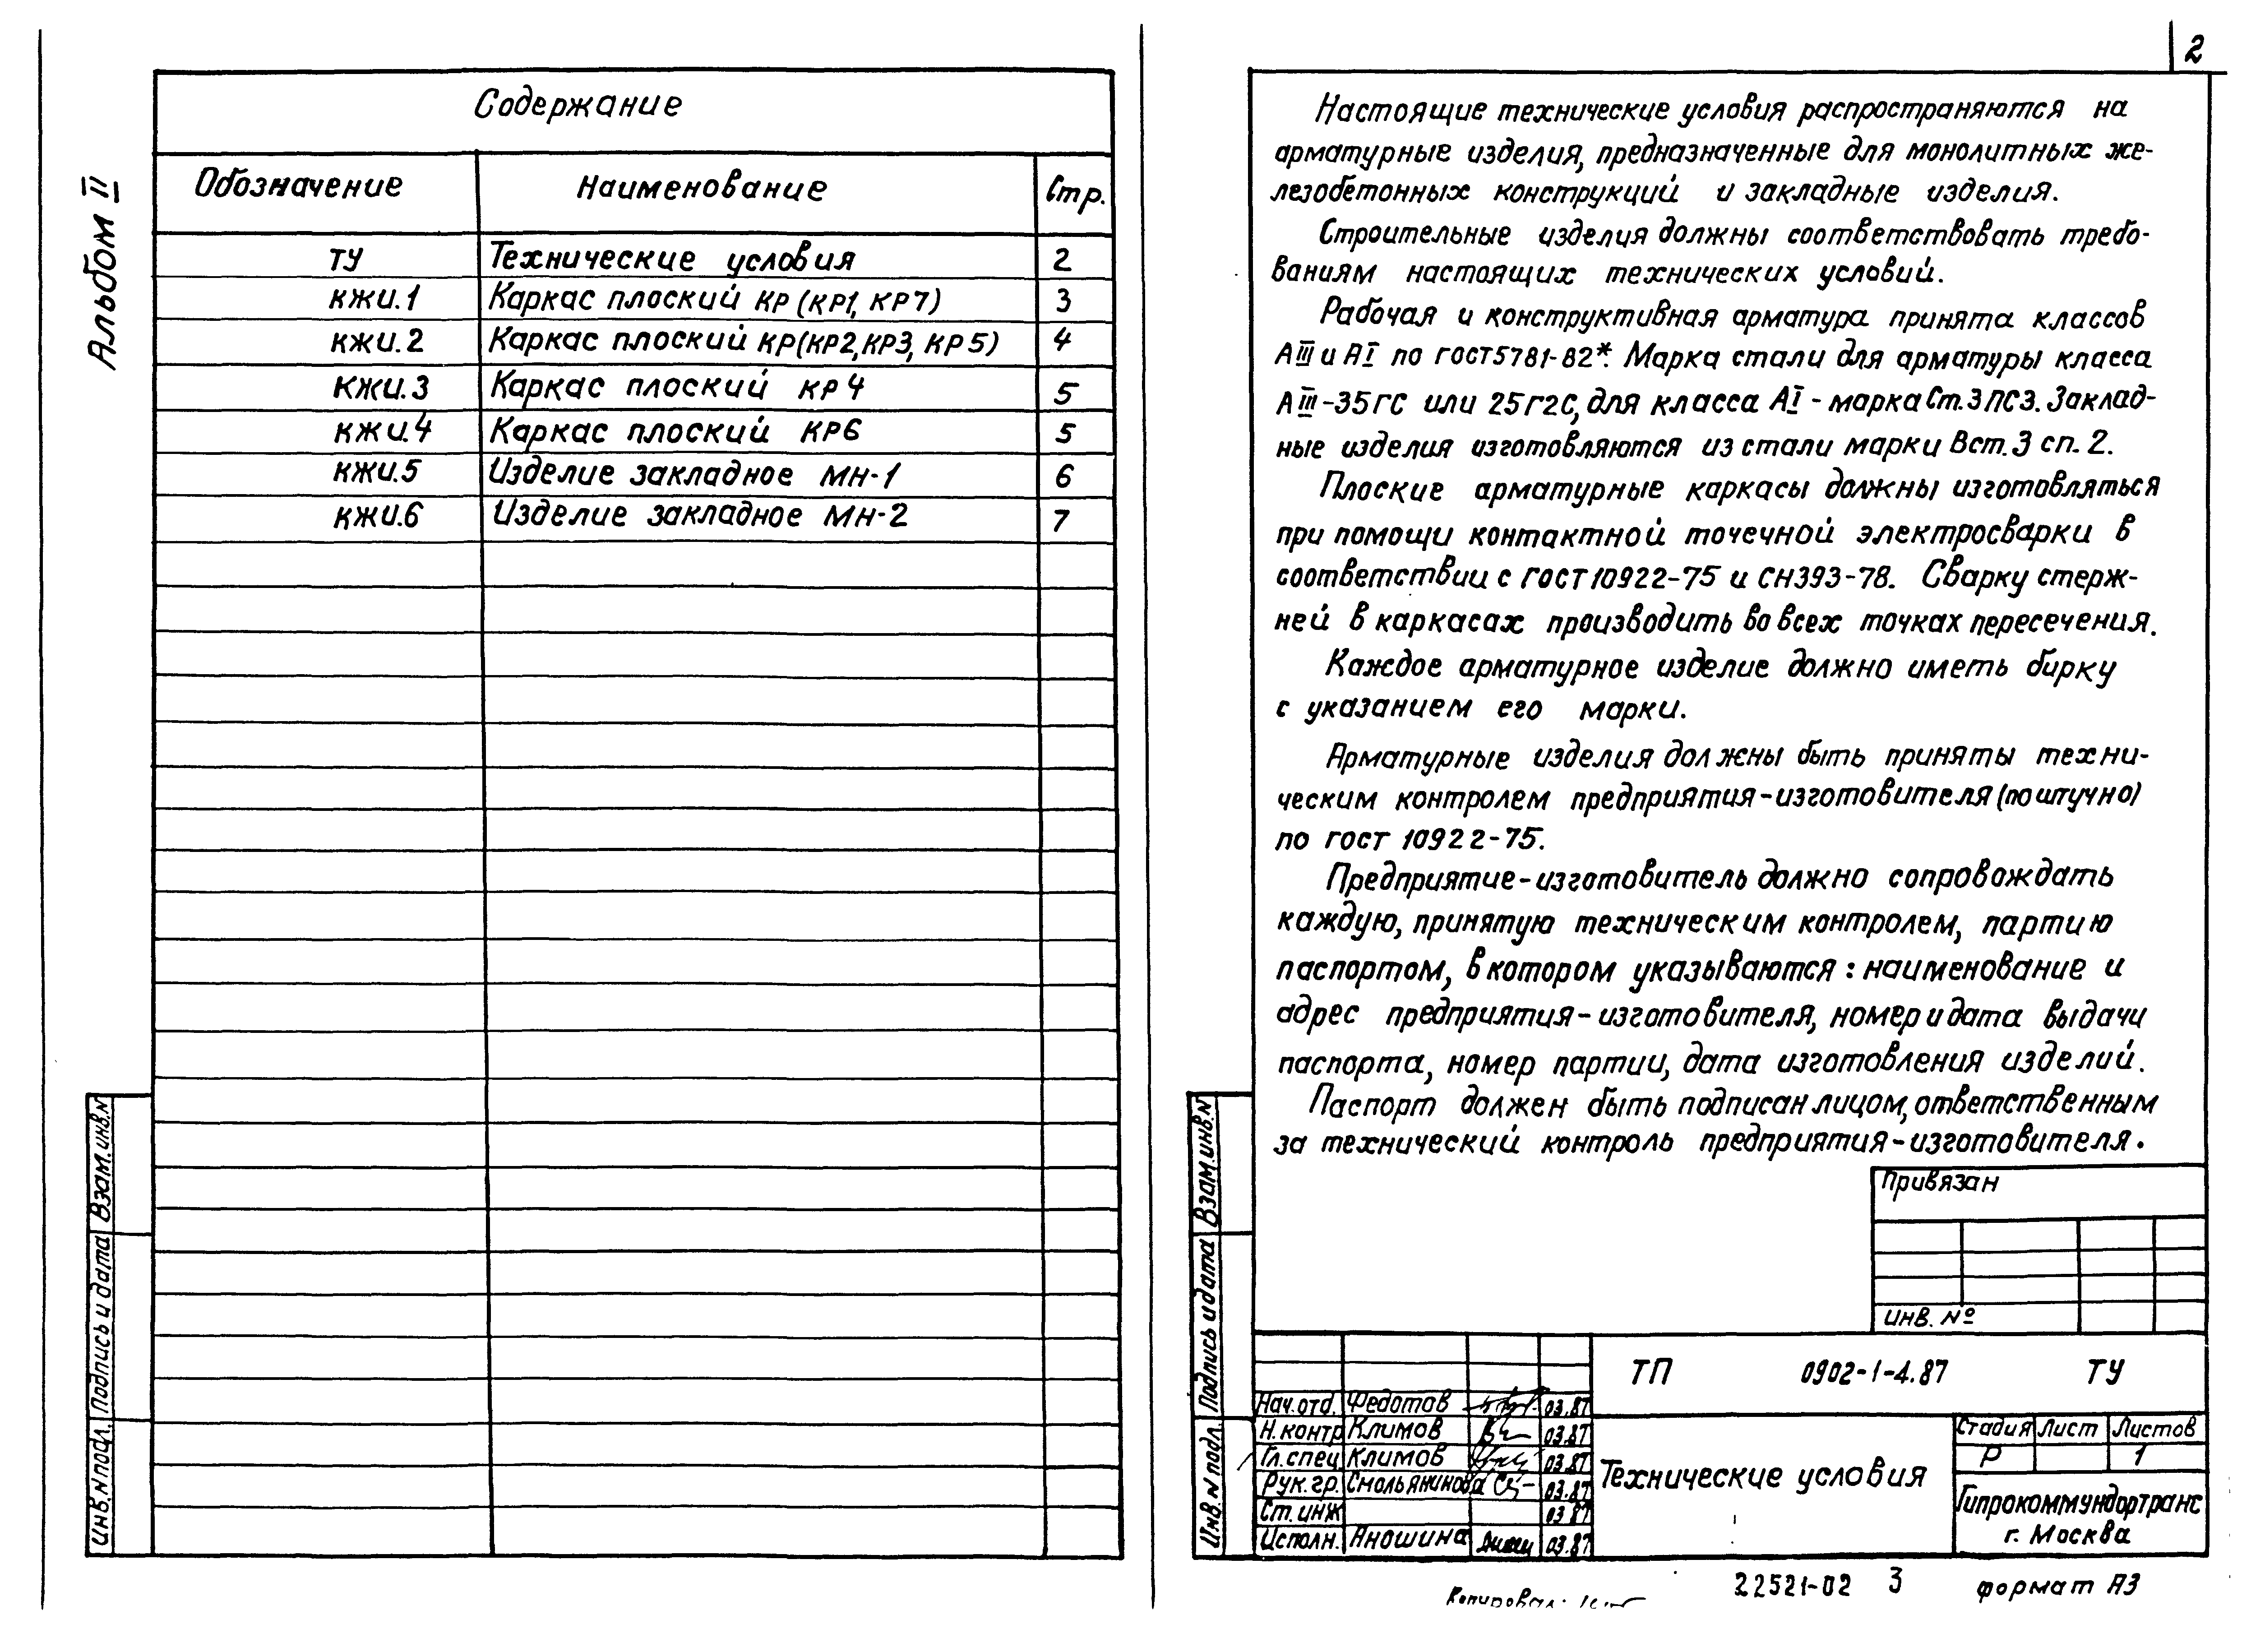 Альбом II
Содержание
Обозначение Наименование Стр.
ТУ Технические условия 2
КЖИ.1 Каркас плоский КР (КР1, КР7) 3
КЖИ.2 Каркас плоский КР(КР2, КР3, КР5) 4
КЖИ.3 Каркас плоский КР4 5
КЖИ.4 Каркас плоский КР6 5
КЖИ.5 Изделие закладное МН-1 6
КЖИ.6 Изделие закладное МН-2 7
Взам.инв.N
Подпись и дата
Инв.N подл.
2
Настоящие технические условия распространяются на
арматурные изделия, предназначенные для монолитных же-
лезобетонных конструкций и закладные изделия.
Строительные изделия должны соответствовать требо-
ваниям настоящих технических условий.
Рабочая и конструктивная арматура принята классов
АIII и АI по ГОСТ5781-82*. Марка стали для арматуры класса
АIII-35ГС или 25Г2С, для класса АI - марка Ст.3ПС3. Заклад-
ные изделия изготовляются из стали марки Вст.3 сп.2.
Плоские арматурные каркасы должны изготовляться
при помощи контактной точечной электросварки в
соответствии с ГОСТ10922-75 и СН393-78. Сварку стерж-
ней в каркасах производить во всех точках пересечения.
Каждое арматурное изделие должно иметь бирку
с указанием его марки.
Арматурные изделия должны быть приняты техни-
ческим контролем предприятия-изготовителя (поштучно)
по ГОСТ 10922-75.
Предприятие-изготовитель должно сопровождать
каждую, принятую техническим контролем, партию
паспортом, в котором указываются: наименование и
адрес предприятия-изготовителя, номер и дата выдачи
паспорта, номер партии, дата изготовления изделий.
Паспорт должен быть подписан лицом, ответственным
за технический контроль предприятия-изготовителя.
Взам.инв.N
Подпись и дата
Инв.N подл.
Привязан
Инв. №
ТП 0902-1-4.87 ТУ
Нач.отд. Федотов 03.87
Н.контр Климов 03.87
Гл.спец Климов 03.87
Рук.гр. Смольянинова 03.87
Ст.инж 03.87
Исполн. Аношина 03.87
Технические условия
Стадия Лист Листов
Р 1
Гипрокоммундортранс
г. Москва
Копировал:
22521-02 3 формат А3